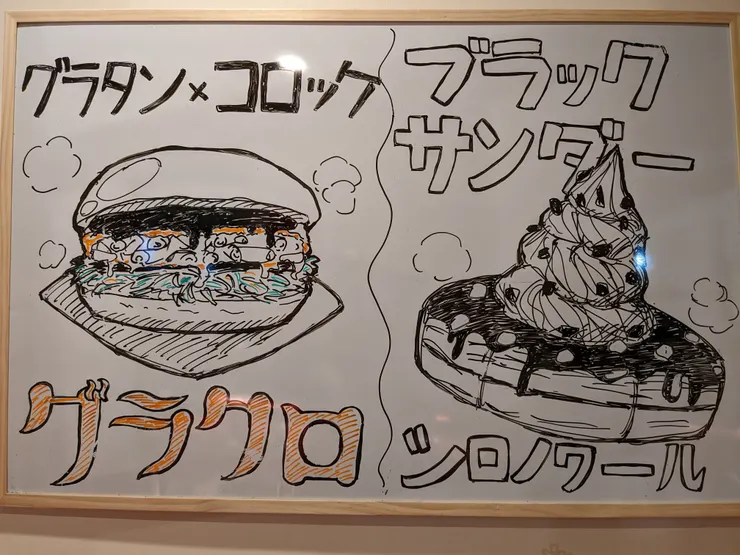 グラタン×コロッケ
グラクロ
ブラック
サンダー
シロノワール